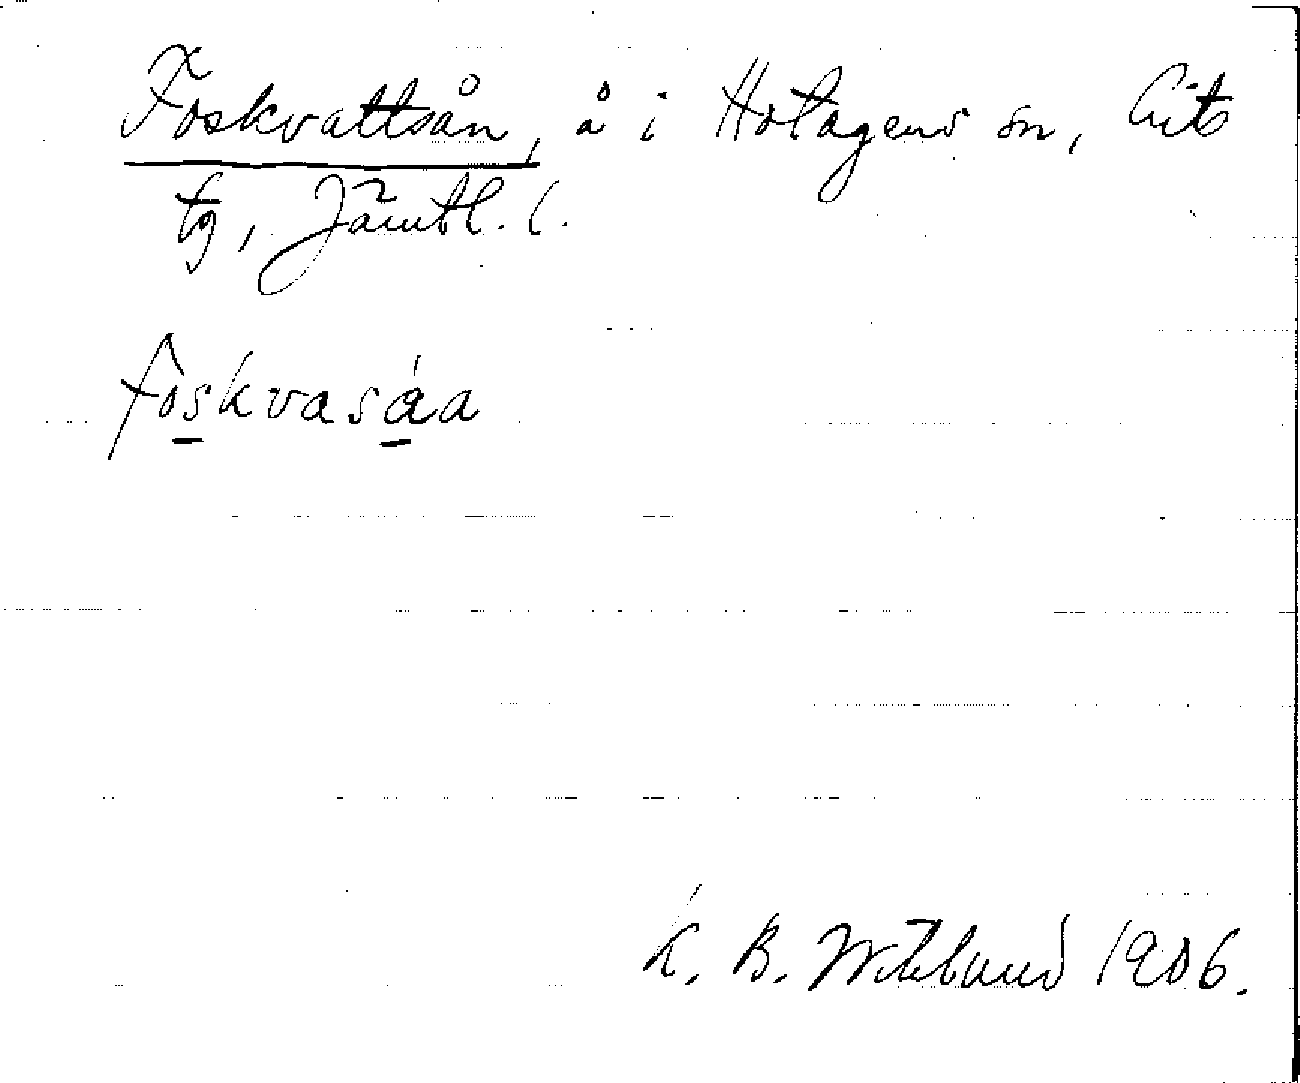 Foskvattsån, å i Hotagens sn, Lits
tg, Jämtl. l.
foskvasáa
K. B. Wiklund 1906.